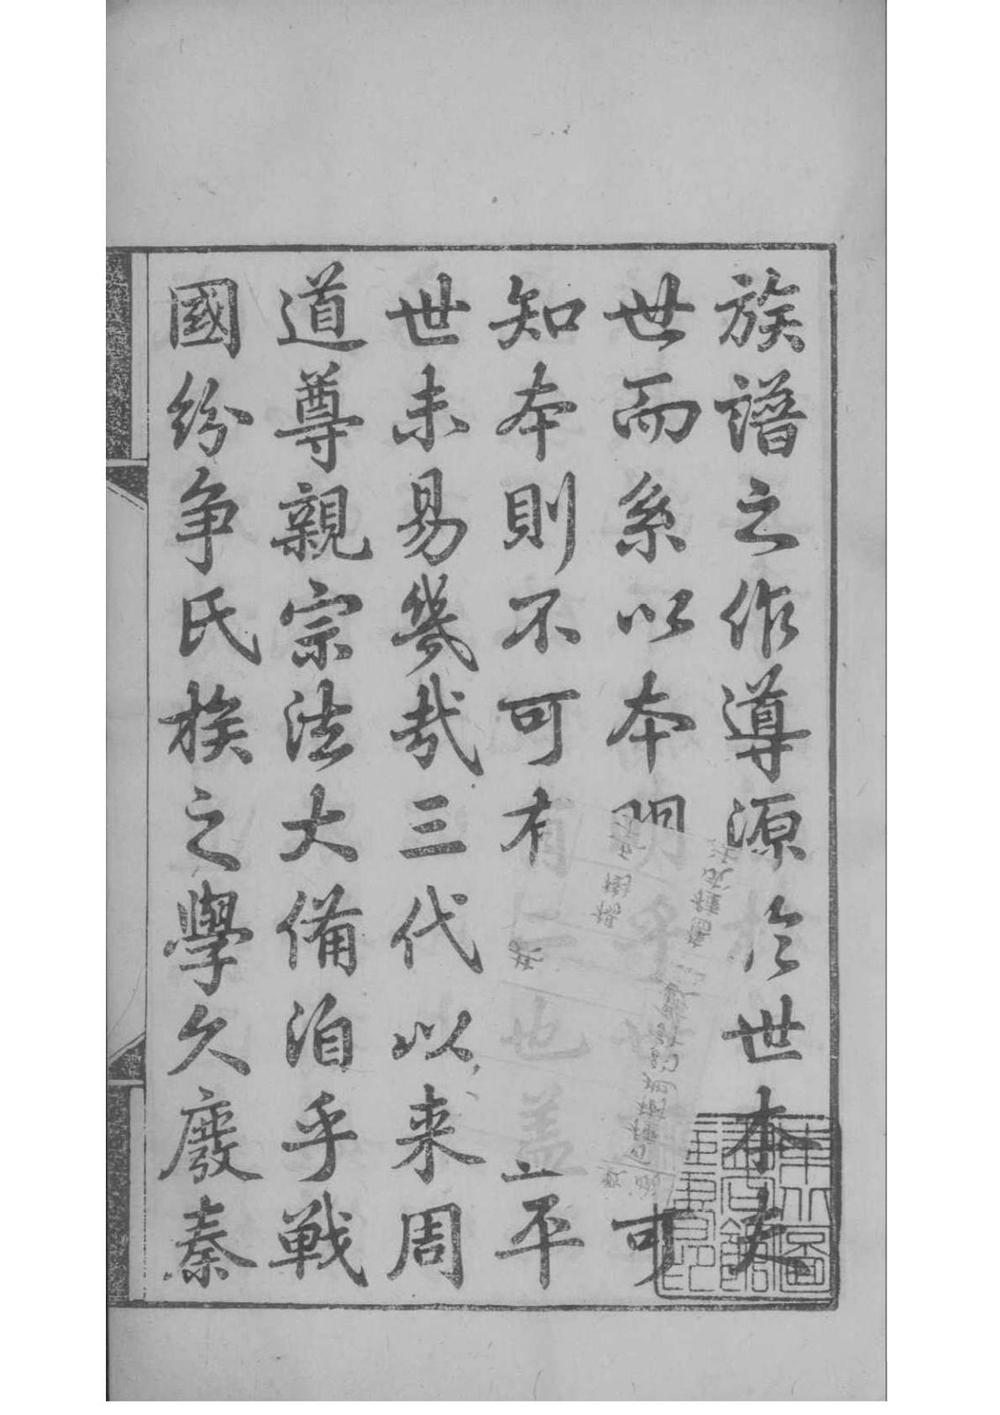 族譜之作導源於世本夫
世而系以本明可
知本則不可有平
世未易幾哉三代以来周
道尊親宗法大備洎乎戦
國紛争氏族之學久廢秦